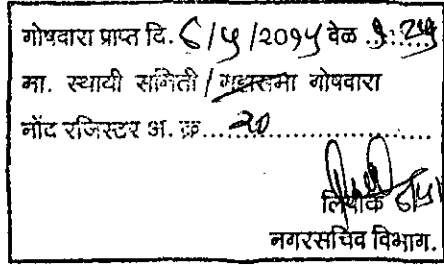 गोषवारा प्राप्त दि. ८/५/२०१५ वेळ
मा. स्थायी समिती / महासभा गोषवारा
नोंद रजिस्टर अ. क्र....२०..............
लिपीक ८/५/
नगरसचिव विभाग.